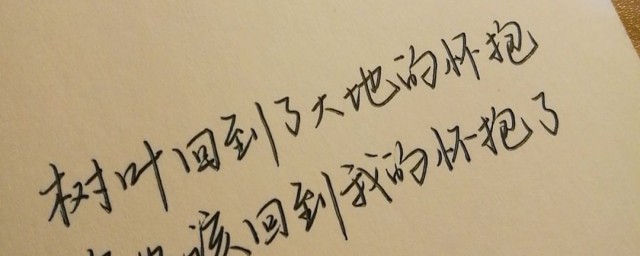 树叶回到了大地的怀抱
该回到我的怀抱了